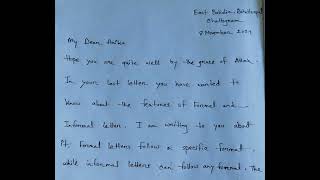 East Bakalia, Rahattarpul
Chattogram
9 November 2024
My Dear Anika
Hope you are quite well by the grace of Allah.
In your last letter you have wanted to
know about the features of Formal and
Informal letter. I am writing to you about
it. Formal letters follow a specific format,
while informal letters can follow any format. The